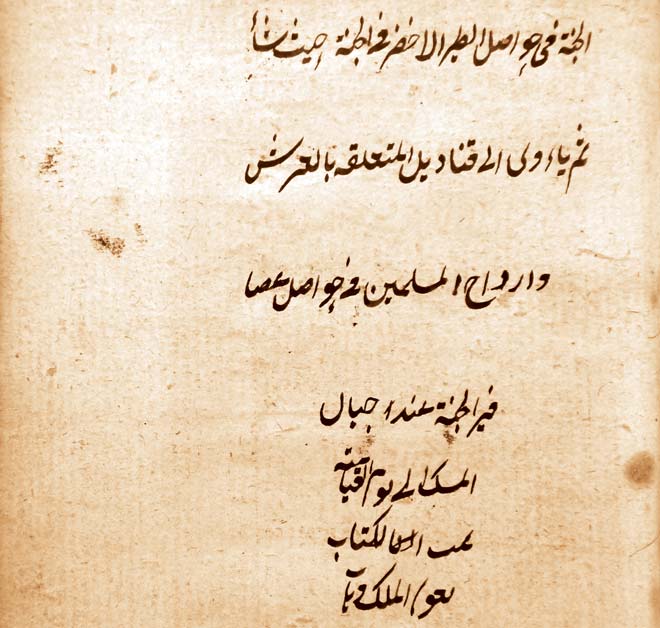 الجنة في حواصل الطير الاخضر في الجنة حيث شأ
ثم ياءوى الى قناديل المتعلقه بالعرش
وارواح المسلمين في حواصل عصا
فير الجنة عند اجبال
المسك الى يوم القيامة
الكتاب
بعون الملك